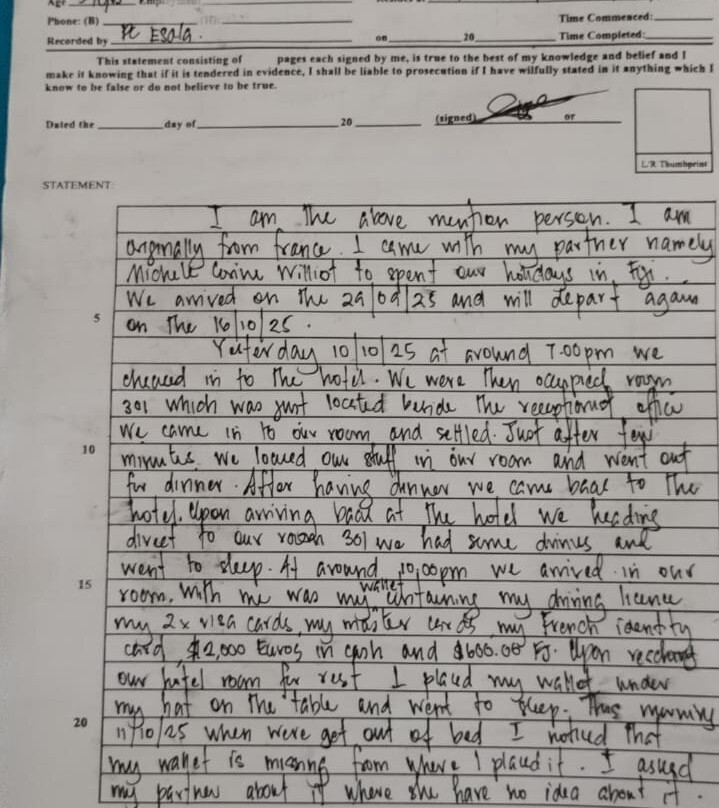 Phone: (B)
Time Commenced:
Recorded by PC Esala. on 20 Time Completed:
This statement consisting of pages each signed by me, is true to the best of my knowledge and belief and I
make it knowing that if it is tendered in evidence, I shall be liable to prosecution if I have wilfully stated in it anything which I
know to be false or do not believe to be true.
Dated the day of 20 (signed) or
L/R Thumbprint
STATEMENT:
I am the above mention person. I am
originally from france. I came with my partner namely
Williot to spent our holidays in Fiji.
We arrived on the 29/09/25 and will depart again
5 on the 16/10/25.
Yesterday 10/10/25 at around 7.00pm we
checked in to the hotel. We were then occupied room
301 which was just located beside the office
We came in to our room and settled. Just after few
10 minutes we locked our stuff in our room and went out
for dinner. After having dinner we came back to the
hotel. Upon arriving back at the hotel we heading
direct to our room 301 we had some drinks and
went to sleep. At around 10.00pm we arrived in our
15 room. With me was my wallet containing my driving licence
my 2 x visa cards, my master cards, my French identity
card, $2,000 Euros in cash and $600.00 FJ. Upon
our hotel room for rest I placed my wallet under
my hat on the table and went to sleep. This morning
20 11/10/25 when were get out of bed I noticed that
my wallet is missing from where I placed it. I asked
my partner about it where she have no idea about it.